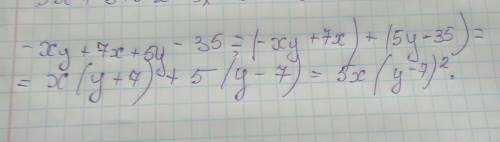 - xy + 7x + 5y - 35 = (-xy + 7x) + (5y - 35) =
= x (y + 7) + 5 (y - 7) = 5x (y - 7)².